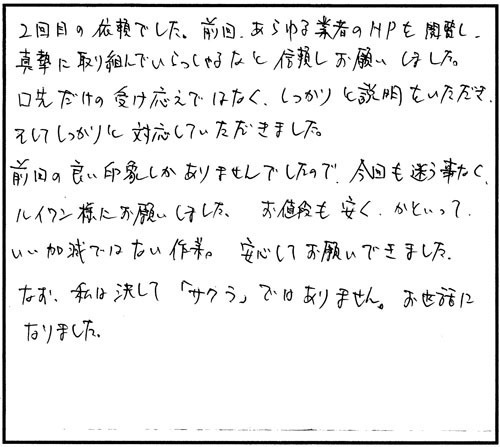 2回目の依頼でした。前回、あらゆる業者のHPを閲覧し、
真摯に取り組んでいらっしゃるなと信頼しお願いしました。
口先だけの受け応えではなく、しっかりと説明をいただき、
そしてしっかりと対応していただきました。
前回の良い印象しかありませんでしたので、今回も迷う事なく、
ルイワン様にお願いしました。お値段も安く、かといって、
いい加減ではない作業。安心してお願いできました。
なお、私は決して「サクラ」ではありません。お世話に
なりました。